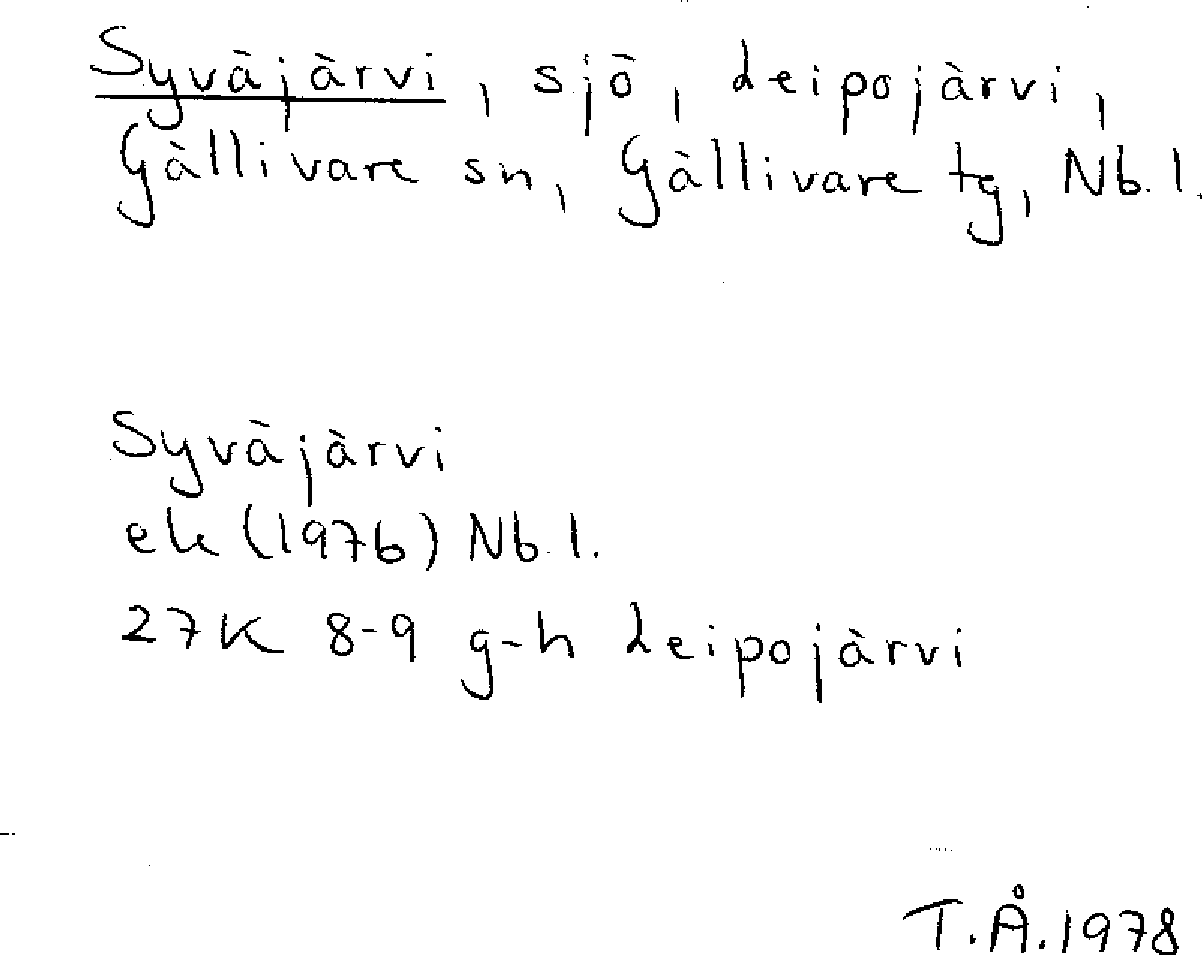 Syväjärvi, sjö, Leipojärvi,
Gällivare sn, Gällivare tg, Nb. l.
Syväjärvi
ek (1976) Nb. l.
27K 8-9 g-h Leipojärvi
T.Å. 1978